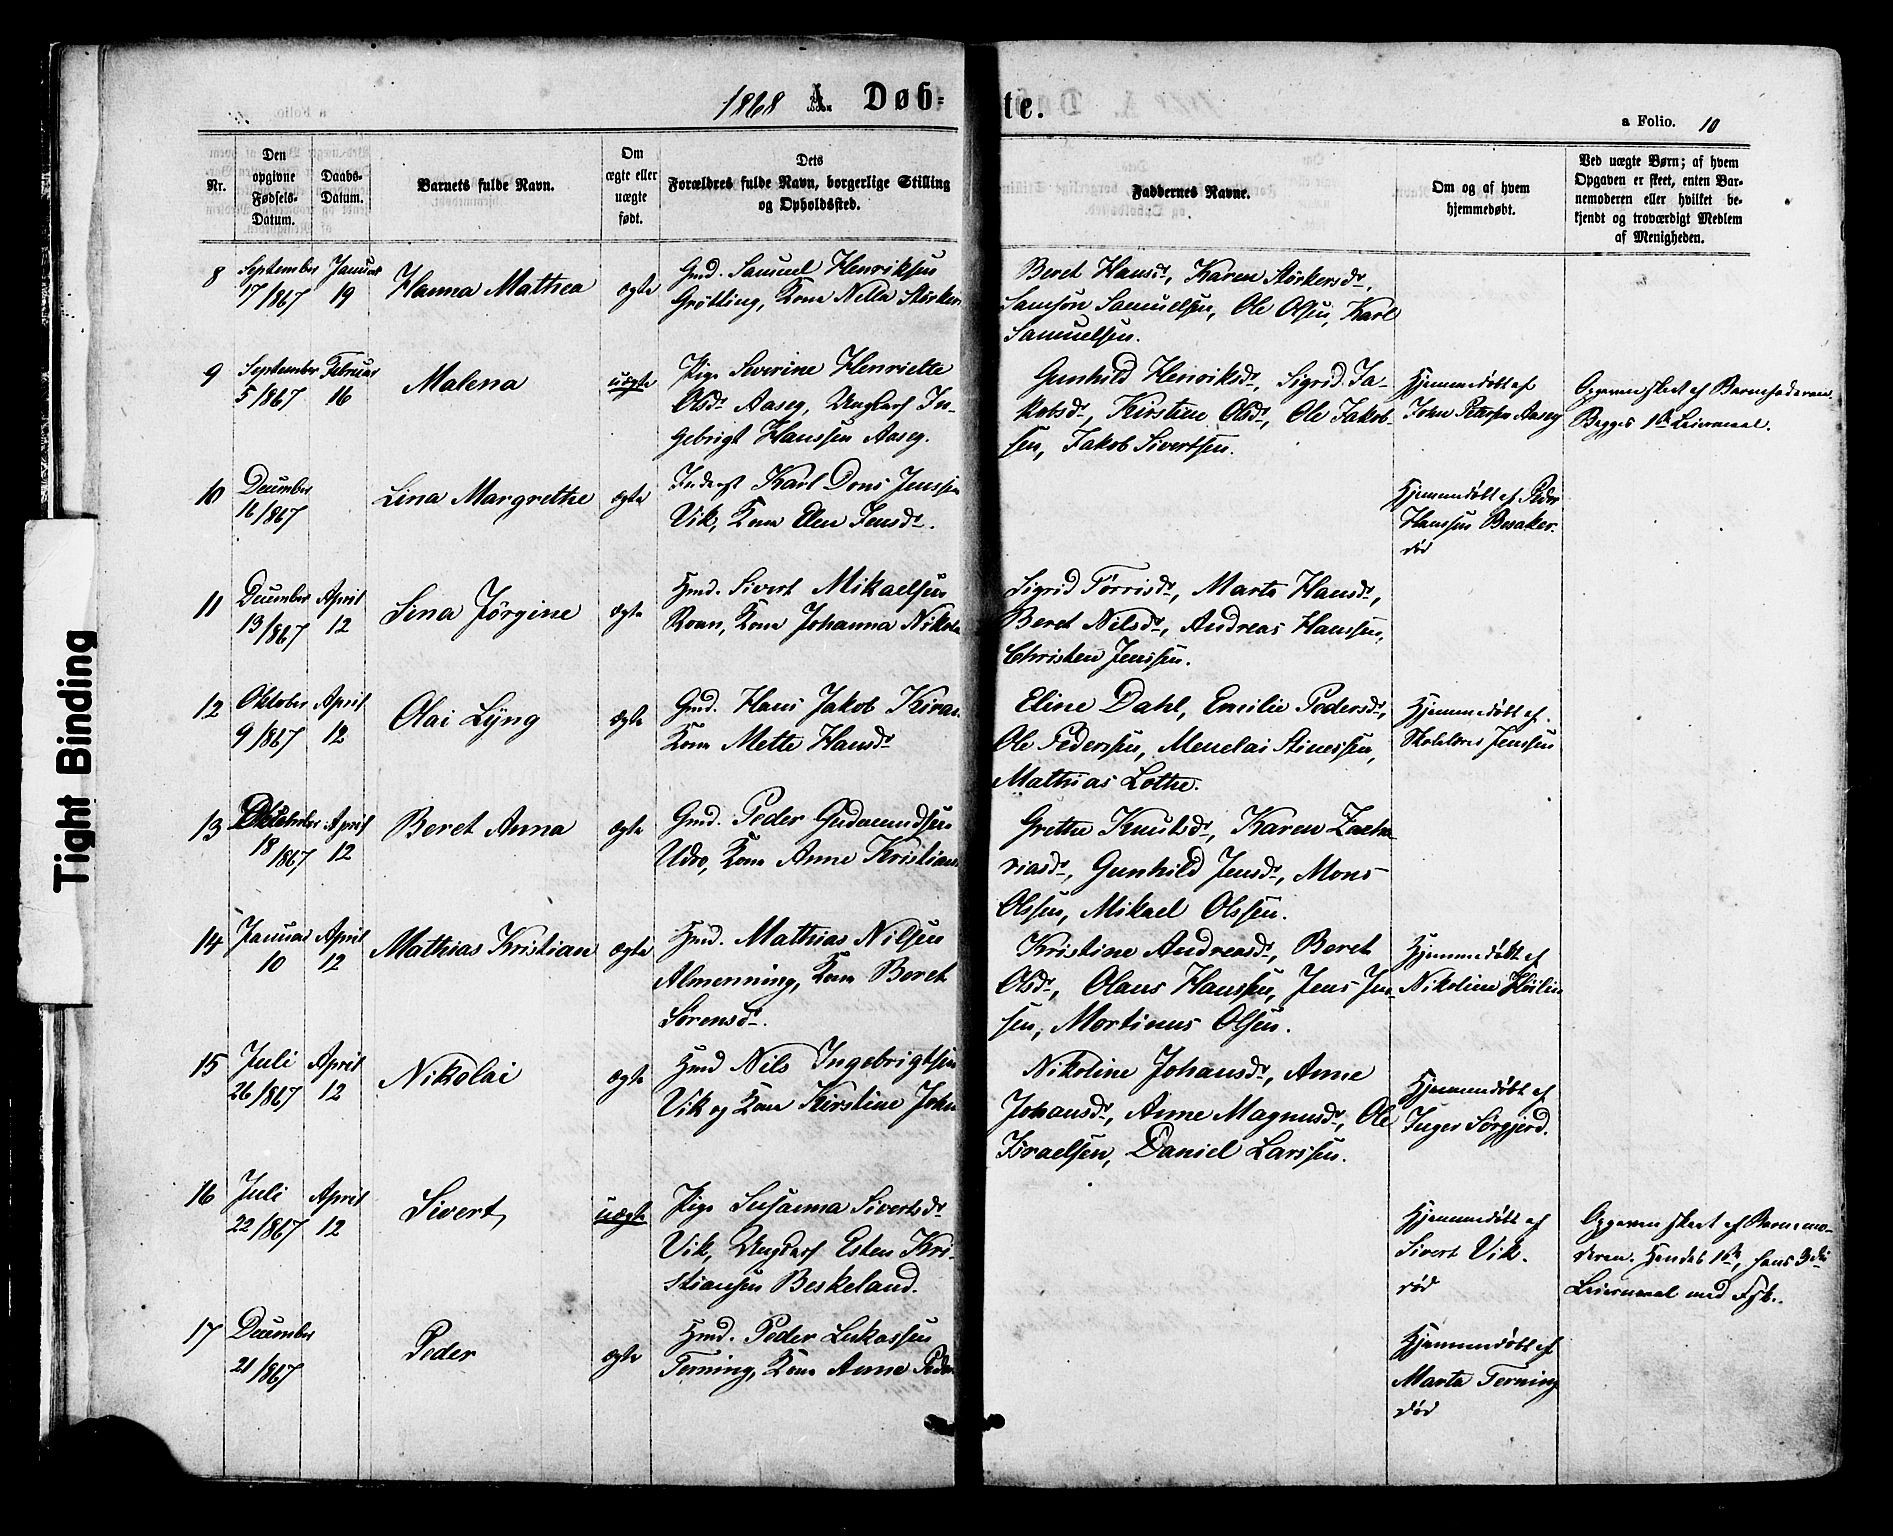 Tight Binding
1868 A. Døb-
te.
a Folio. 10
Nr.
Den opgivne Fødsels-Datum.
Daabs-Datum.
Barnets fulde Navn.
Om ægte eller uægte født.
Dets Forældres fulde Navn, borgerlige Stilling og Opholdssted.
Faddernes Navne.
Om og af hvem hjemmedøbt.
Ved uægte Børn; af hvem Opgaven er skeet, enten Barnemoderen eller hvilket bekjendt og troværdigt Medlem af Menigheden.
8 September Januar
17/867 19 Hanna Mathea ægte
Gmd. Samuel Henriksen
Grøtting, Kone Nella Størker
Beret Hansdr, Karen Størkersdr,
Samson Samuelsen, Ole Olsen, Karl
Samuelsen.
9 September Februar
5/867 16 Malena uægte
Pige Severine Henriette
Olsdr Aaseg, Ungkarl In-
gebrigt Hanssen Aaseg.
Gunhild Henriksdr, Sigrid Ja-
kobsdr, Kirstine Olsdr, Ole Jakob-
sen, Jakob Sivertsen.
Hjemmedøbt af
John Petersen Aaseg
Opgaven skeet af Barnefaderen.
Begges 1ste Leiermaal.
10 December
16/867 Lina Margrethe ægte
Inderst Karl Dons Jenssen
Vik, Kone Elen Jensdr.
Hjemmedøbt af Peder
Hanssen Besaker.
død
11 December April
13/867 12 Lina Jørgine ægte
Hmd. Sivert Mikaelsen
Roan, Kone Johanna Nikola
Sigrid Tørrisdr, Marta Hansdr,
Beret Nilsdr, Andreas Hanssen,
Christen Jenssen.
12 Oktober April
9/867 12 Olai Lyng ægte
Gmd. Hans Jakob Kiran
Kone Mette Hansdr
Eline Dahl, Emilie Pedersdr,
Ole Pederssen, Menelai Stinessen,
Mathias Lothe.
Hjemmedøbt af
Skolelærer Jenssen
13 April
18/867 12 Beret Anna ægte
Gmd. Peder Gudmundsen
Udro, Kone Anne Kristian
Grethe Knutsdr, Karen Zacha-
riasdr, Gunhild Jensdr, Mons
Olssen, Mikael Olssen.
14 Januar April
10 12 Mathias Kristian ægte
Hmd. Mathias Nilsen
Almenning, Kone Beret
Sørensdr.
Kristine Andreasdr, Beret
Olsdr, Olaus Hanssen, Jens Jen-
sen, Mortinus Olsen.
Hjemmedøbt af
Nikoline
15 Juli April
26/867 12 Nikolai ægte
Hmd Nils Ingebrigtsen
Vik og Kone Kirstine John
Nikoline Johansdr, Anne
Johansdr, Anne Magnusdr, Ole
Israelsen, Daniel Larssen.
Hjemmedøbt af
Inger Sørgjerd.
16 Juli April
22/867 12 Sivert, uægte
Pige Susanna Sivertsdr
Vik, Ungkarl Esten Kri-
stiansen Beskeland.
Hjemmedøbt af
Sivert Vik.
død
Opgaven skeet af Barnemo-
deren. Hendes 1ste, hans 3die
Leiermaal med Fgb.
17 December
21/867 Peder ægte
Hmd. Peder Lukassen
Terning, Kone Anne Peder
Hjemmedøbt af
Marta Terning
død